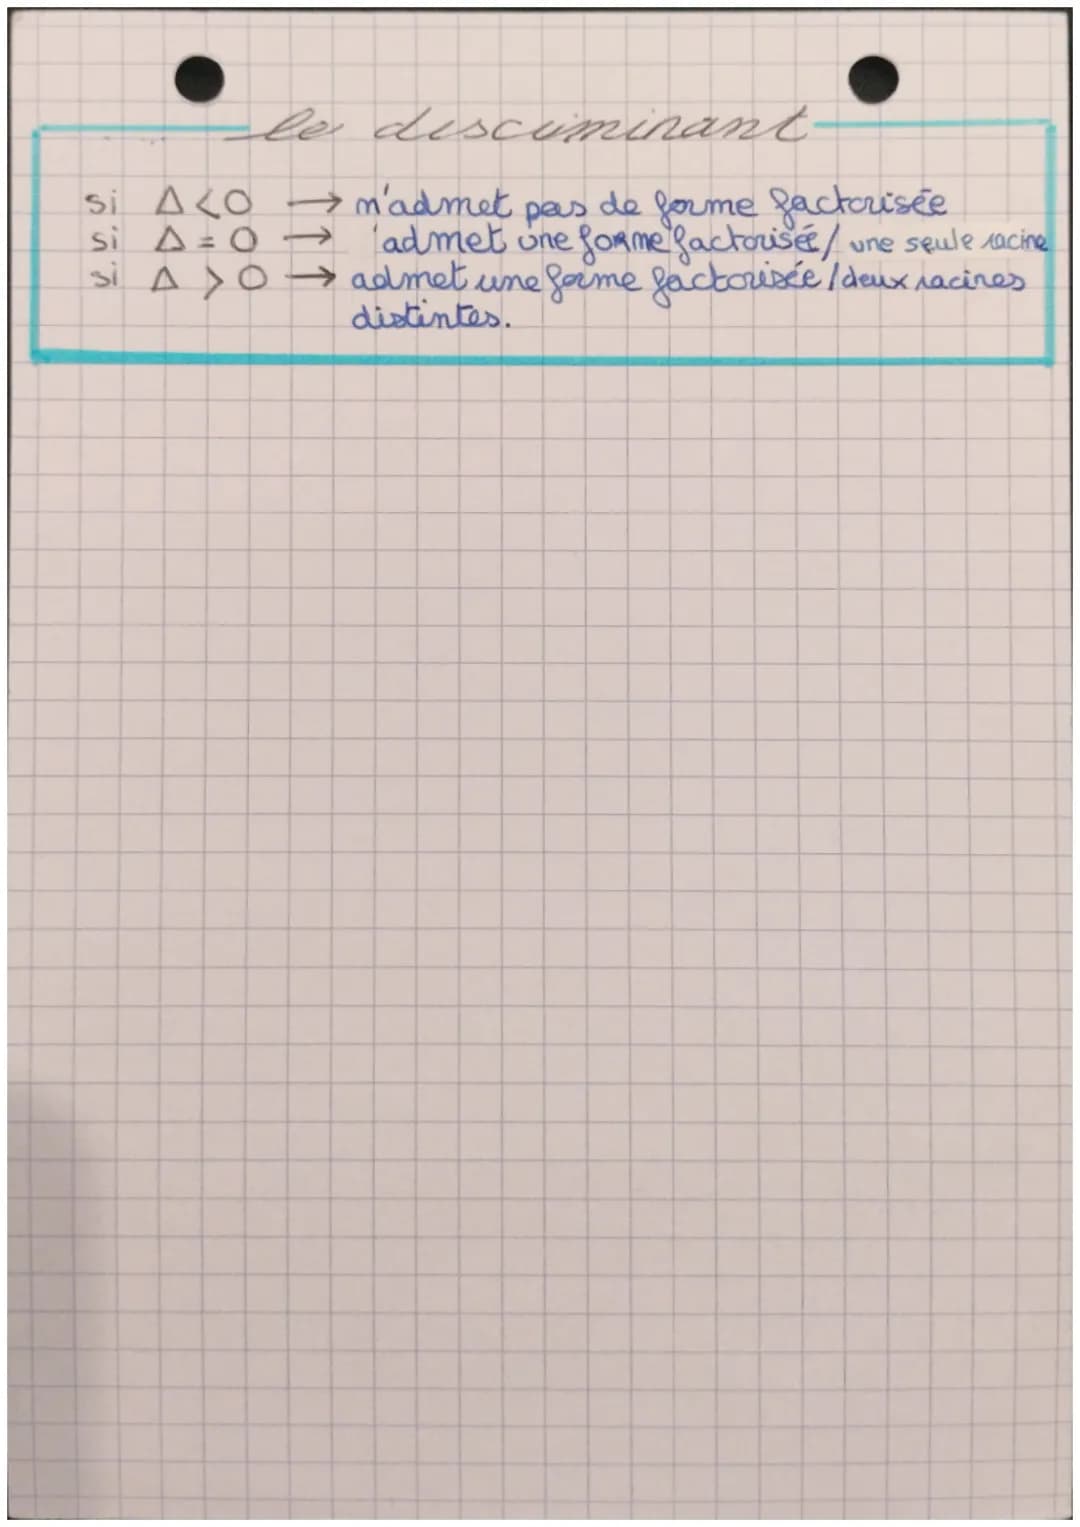 le disciminant
si Δ < 0 → n'admet pas de forme factorisée
si Δ = 0 → 'admet une forme factorisée / une seule racine
si Δ > 0 → admet une forme factorisée / deux racines
distintes.